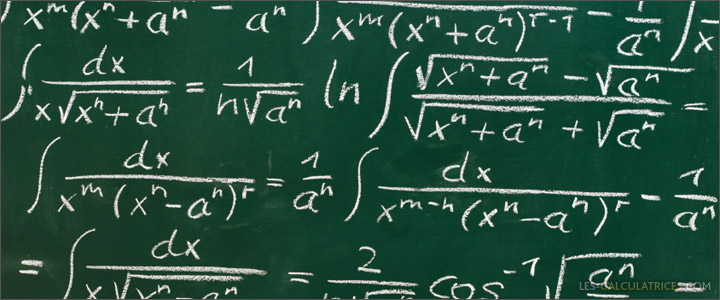 x^m(x^n + a^n - a^n ∫ x^m(x^n + a^n)^{r-1} - 1/a^n ∫ x
∫ dx/(x√(x^n + a^n)) = 1/(n√(a^n)) ln ∫ (√(x^n + a^n) - √(a^n))/(√(x^n + a^n) + √(a^n)) =
∫ dx/(x^m(x^n - a^n)^r) = 1/a^n ∫ dx/(x^{m-n}(x^n - a^n)^r) - 1/a^n
= ∫ dx/(x√(x^n - a^n)) = 2/(n√(a^n)) cos^{-1} √(a^n
LES-CALCULATRICES.COM